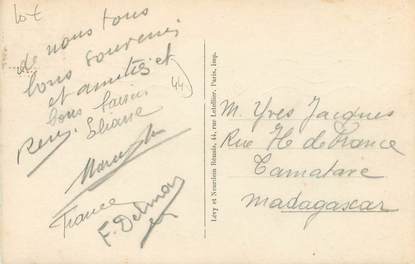 10€
de nous tous
bons souvenirs
et amitiés et
bons baisers
René, Eliane
44
France
F. Delmas
Lévy et Neurdein Réunis, 44, rue Letellier, Paris, Imp.
M. Yves Jacques
Rue Ile de France
Tamatave
Madagascar